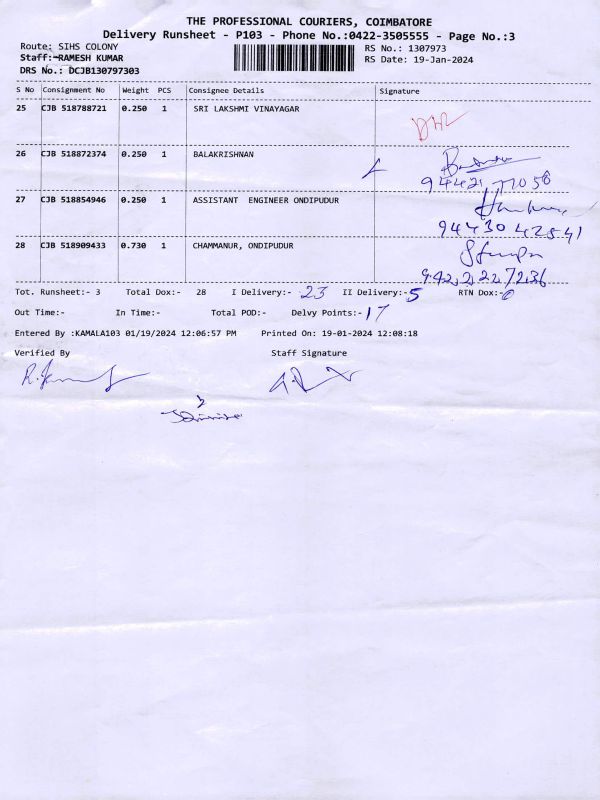 THE PROFESSIONAL COURIERS, COIMBATORE
Delivery Runsheet - P103 - Phone No.:0422-3505555 - Page No.:3
Route: SIHS COLONY
RS No.: 1307973
Staff:-RAMESH KUMAR
RS Date: 19-Jan-2024
DRS No.: DCJB130797303
S No Consignment No Weight PCS Consignee Details Signature
25 CJB 518788721 0.250 1 SRI LAKSHMI VINAYAGAR
26 CJB 518872374 0.250 1 BALAKRISHNAN
94421 77058
27 CJB 518854946 0.250 1 ASSISTANT ENGINEER ONDIPUDUR
94430 42541
28 CJB 518909433 0.730 1 CHAMMANUR, ONDIPUDUR
9422227236
Tot. Runsheet:- 3 Total Dox:- 28 I Delivery:- 23 II Delivery:- 5 RTN Dox:- 0
Out Time:- In Time:- Total POD:- Delvy Points:- 17
Entered By :KAMALA103 01/19/2024 12:06:57 PM Printed On: 19-01-2024 12:08:18
Verified By Staff Signature